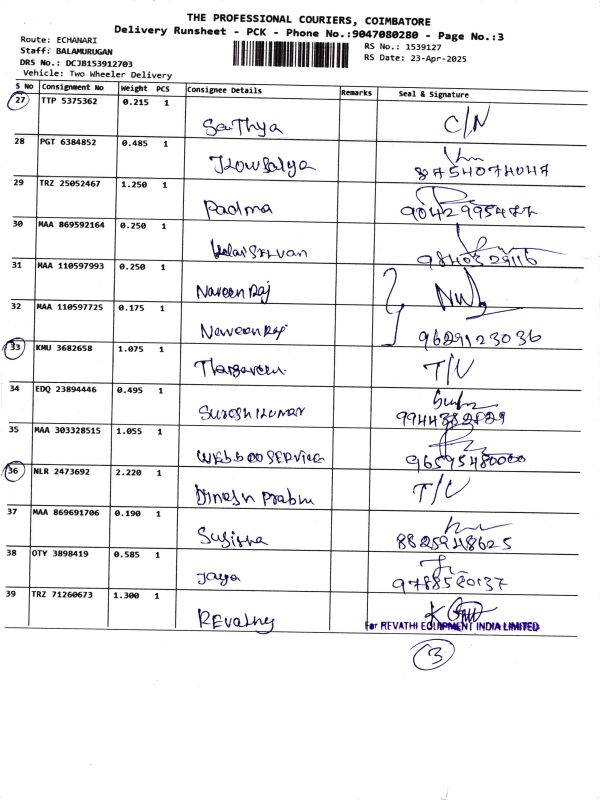 THE PROFESSIONAL COURIERS, COIMBATORE
Delivery Runsheet - PCK - Phone No.:9047080280 - Page No.:3
Route: ECHANARI
Staff: BALAMURUGAN
DRS No.: DCJB153912703
Vehicle: Two Wheeler Delivery
RS No.: 1539127
RS Date: 23-Apr-2025
S No Consignment No Weight PCS Consignee Details Remarks Seal & Signature
27 TTP 5375362 0.215 1
Sathya C/N
28 PGT 6384852 0.485 1
Kowsalya 8754074047
29 TRZ 25052467 1.250 1
Padma
30 MAA 869592164 0.250 1
KalaiSelvan
31 MAA 110597993 0.250 1
Naveen Raj
32 MAA 110597725 0.175 1
Naveen Raj 9629123036
33 KMU 3682658 1.075 1
T/U
34 EDQ 23894446 0.495 1
Suresh Kumar
35 MAA 303328515 1.055 1
36 NLR 2473692 2.220 1
Dinesh Prabhu T/U
37 MAA 869691706 0.190 1
8825948625
38 OTY 3898419 0.585 1
Jaya
39 TRZ 71260673 1.300 1
REvathy
For REVATHI EQUIPMENT INDIA LIMITED
3